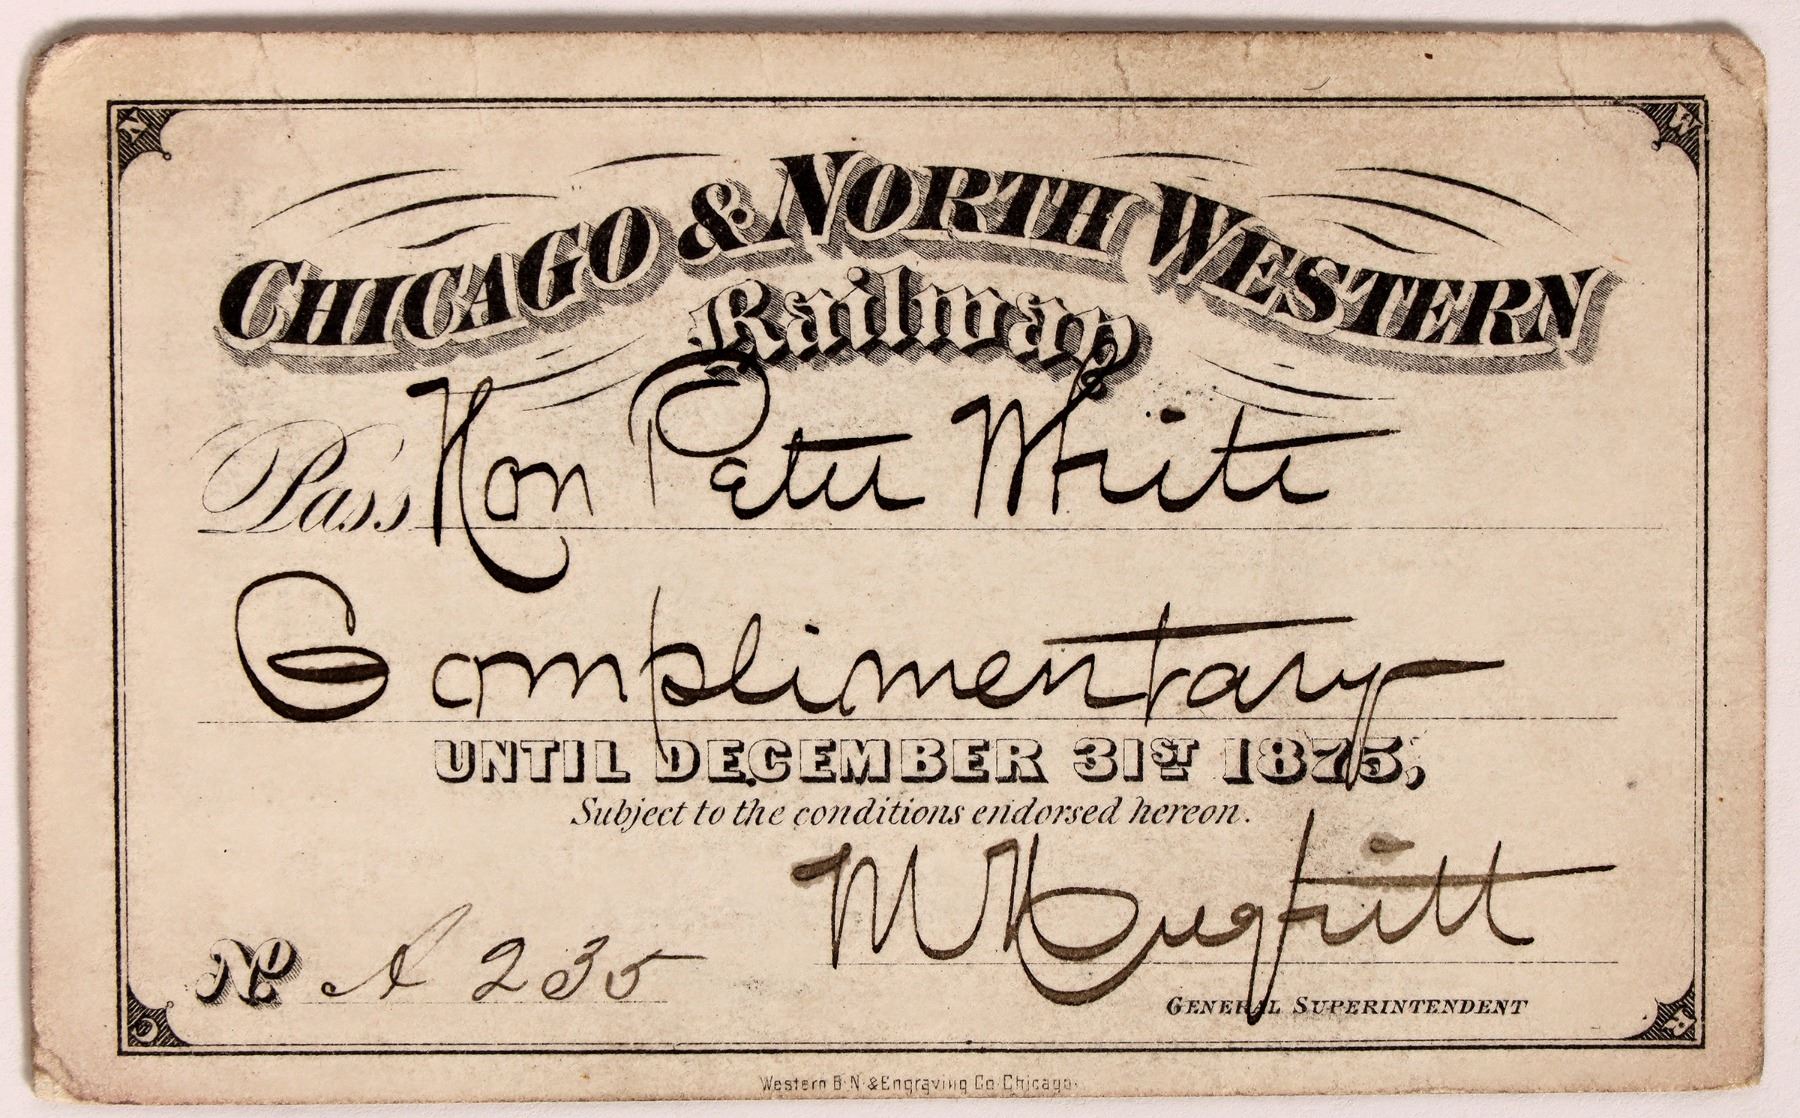 CHICAGO & NORTH WESTERN
Railway
Pass Hon Peter White
Complimentary
UNTIL DECEMBER 31ST 1875,
Subject to the conditions endorsed hereon.
M Hughitt
No A 235
GENERAL SUPERINTENDENT
Western B.N.&Engraving Co.Chicago.